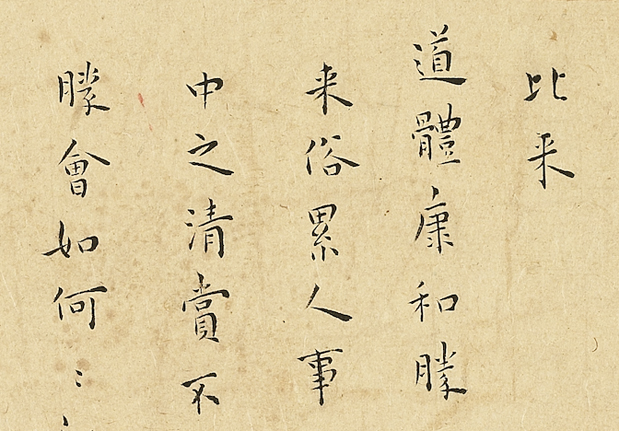 比来
道體康和勝
来俗累人事
中之清賞不
勝會如何〻